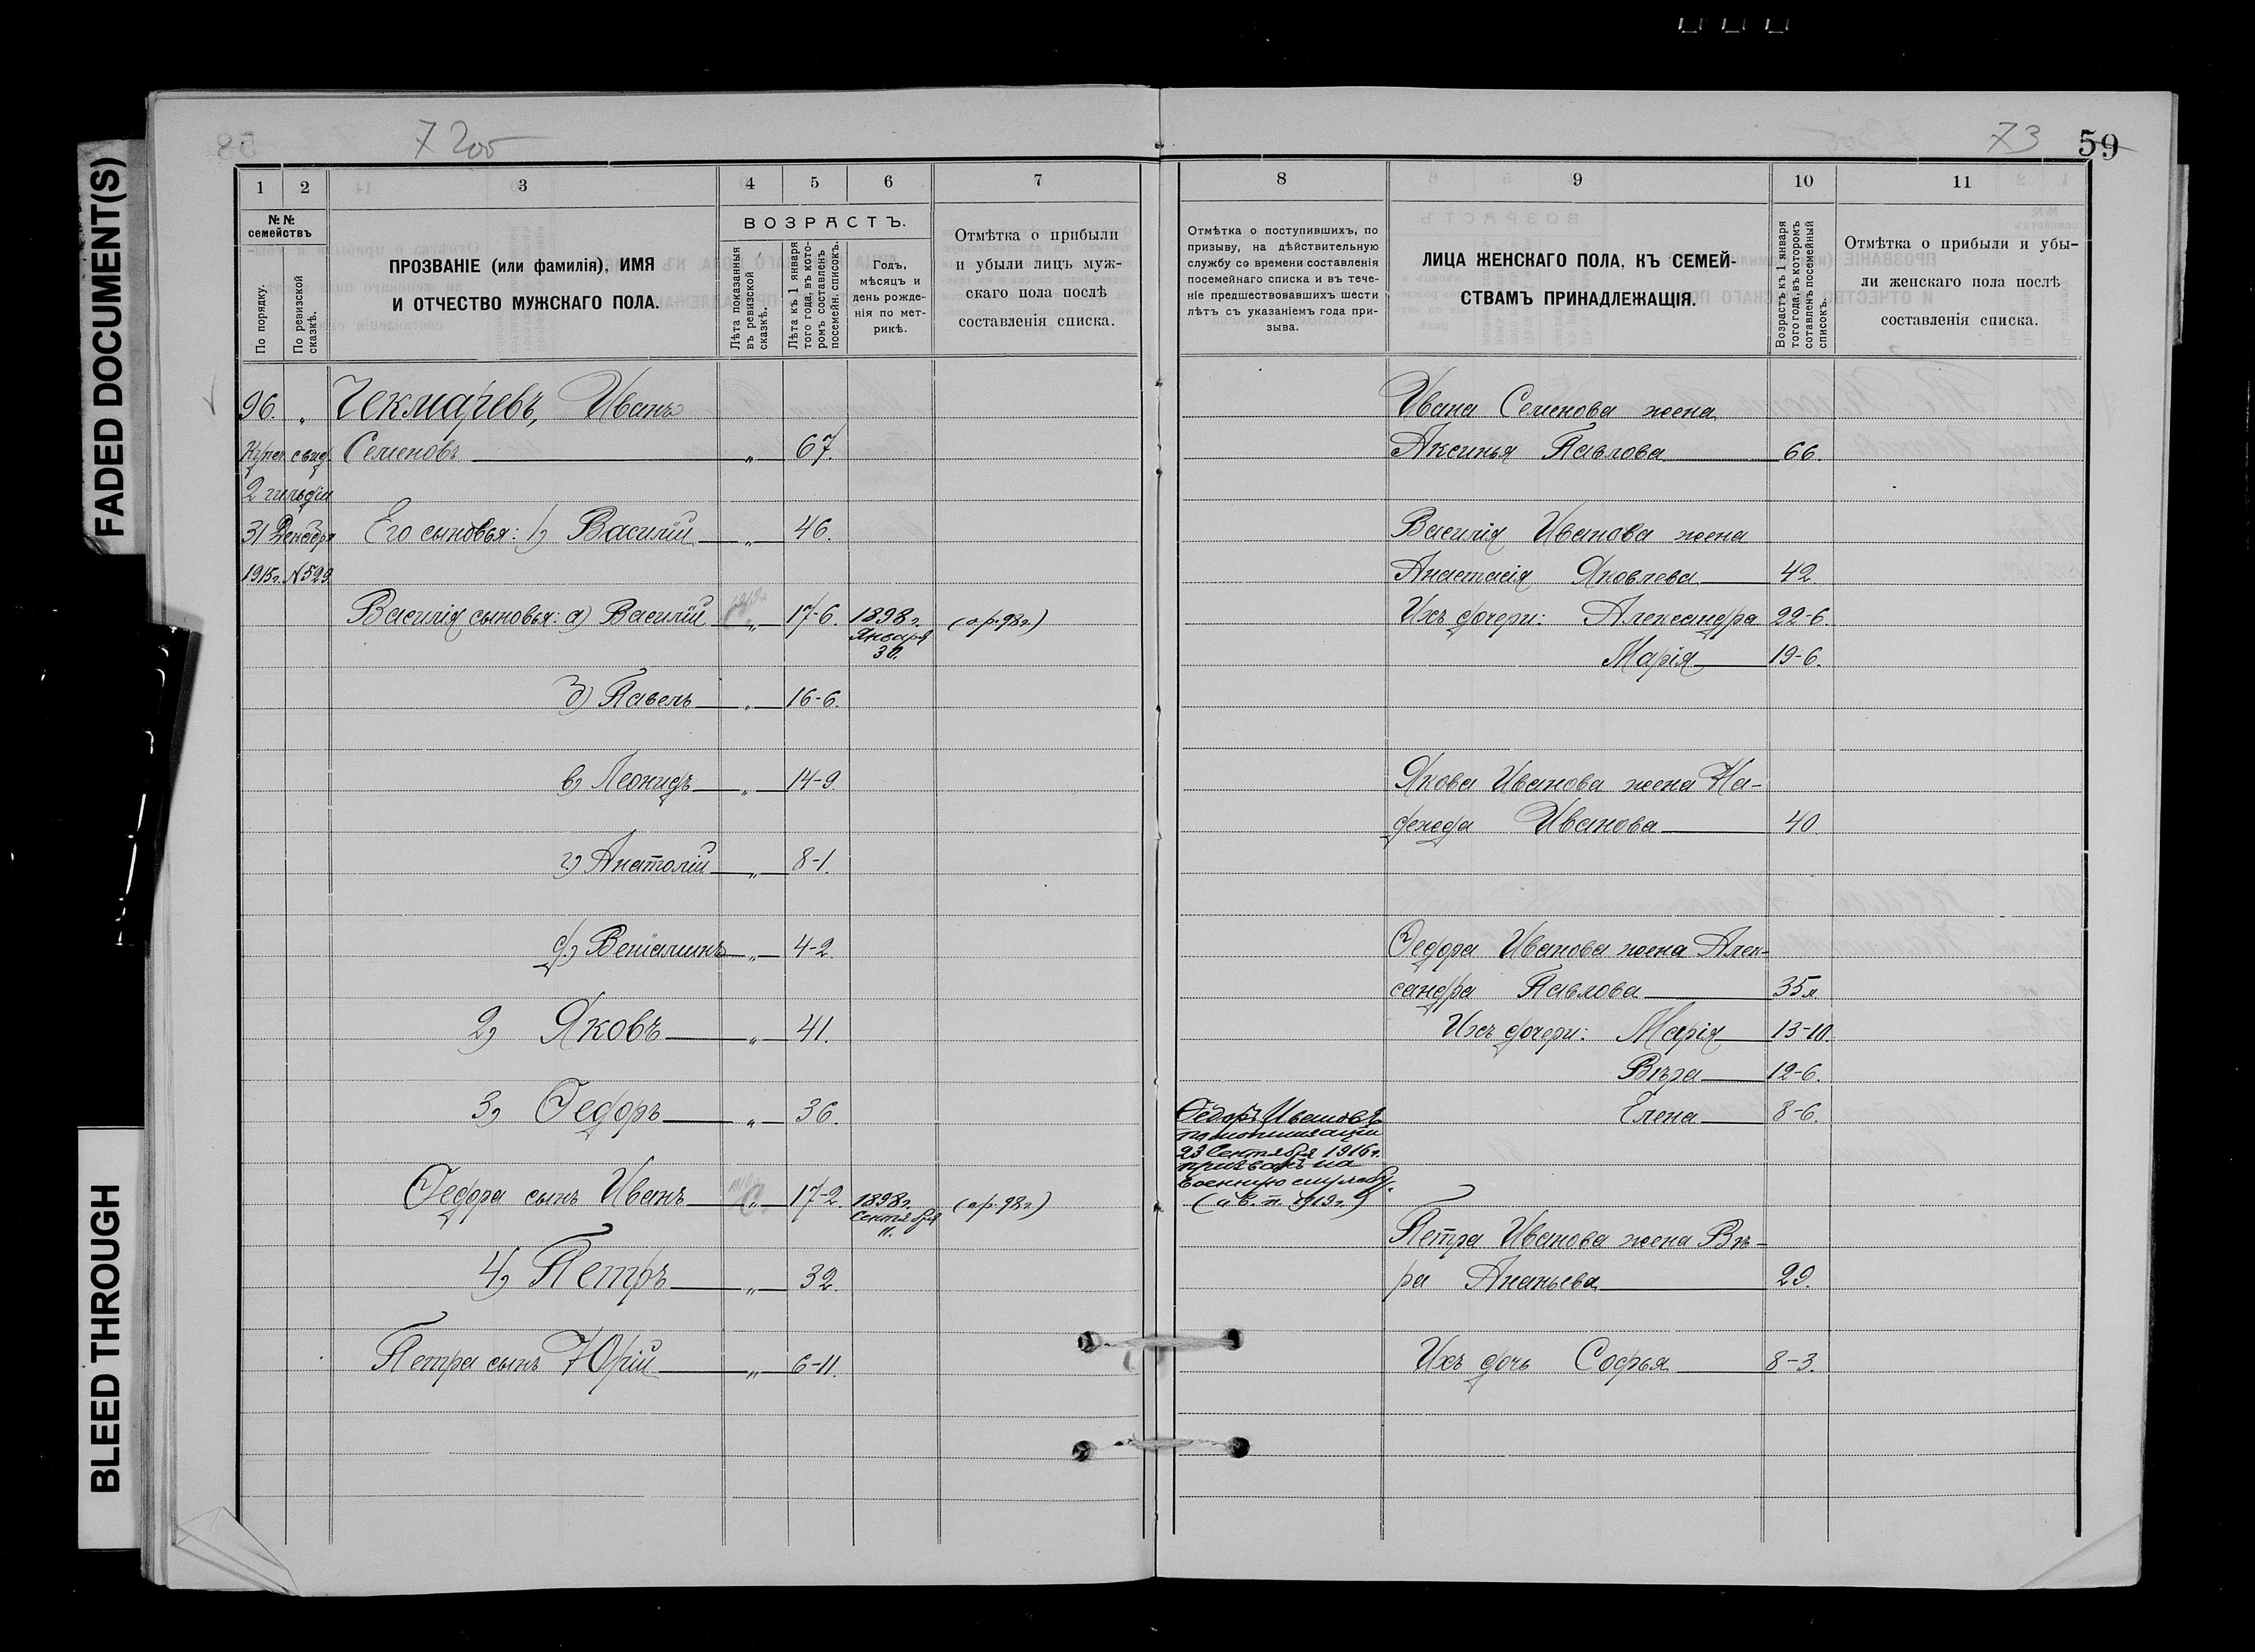 FADED DOCUMENT(S)
BLEED THROUGH
7 205
73 59
1 2 3 4 5 6 7
№ №
семействъ
По порядку.
По ревизской сказкѣ.
ПРОЗВАНІЕ (или фамилія), ИМЯ
И ОТЧЕСТВО МУЖСКАГО ПОЛА.
ВОЗРАСТЪ.
Лѣта показанныя
въ ревизской
сказкѣ.
Лѣта къ 1 января
того года, въ кото-
ромъ составленъ
посемейн. списокъ.
Годъ,
мѣсяцъ и
день рожде-
нія по мет-
рикѣ.
Отмѣтка о прибыли
и убыли лицъ муж-
скаго пола послѣ
составленія списка.
96. „ Чекмаревъ, Иванъ
Купеч свид. Семеновъ „ 67.
2 гильдіи
31 Декабря Его сыновья: 1) Василій „ 46.
1915г. № 529.
Василія сыновья: а) Василій „ 17-6. 1898г. (о.р. 98г.)
Января
30.
б) Павелъ „ 16-6.
в) Леонидъ „ 14-9.
г) Анатолій „ 8-1.
д) Веніаминъ „ 4-2.
2) Яковъ „ 41.
3) Ѳедоръ „ 36.
Ѳедора сынъ Иванъ „ 17-2. 1898г. (о.р. 98г.)
Сентября
11.
4) Петръ „ 32.
Петра сынъ Юрій „ 6-11.
8 9 10 11
Отмѣтка о поступившихъ, по
призыву, на дѣйствительную
службу со времени составленія
посемейнаго списка и въ тече-
ніе предшествовавшихъ шести
лѣтъ съ указаніемъ года при-
зыва.
ЛИЦА ЖЕНСКАГО ПОЛА, КЪ СЕМЕЙ-
СТВАМЪ ПРИНАДЛЕЖАЩІЯ.
Возрастъ къ 1 января
того года, въ которомъ
составленъ посемейный
списокъ.
Отмѣтка о прибыли и убы-
ли женскаго пола послѣ
составленія списка.
Ивана Семенова жена
Аксинья Павлова 66.
Василія Иванова жена
Анастасія Яковлева 42
Ихъ дочери: Александра 22-6.
Марія 19-6.
Якова Иванова жена На-
дежда Иванова 40
Ѳедора Иванова жена Алек-
сандра Павлова 35 л.
Ихъ дочери: Марія 13-10.
Вѣра 12-6.
Елена 8-6.
Ѳедоръ Ивановъ
по мобилизаціи
23 Сентября 1916г.
призванъ на
военную службу.
1919г.)
Петра Иванова жена Вѣ-
ра Ананьева 29.
Ихъ дочь Софья 8-3.